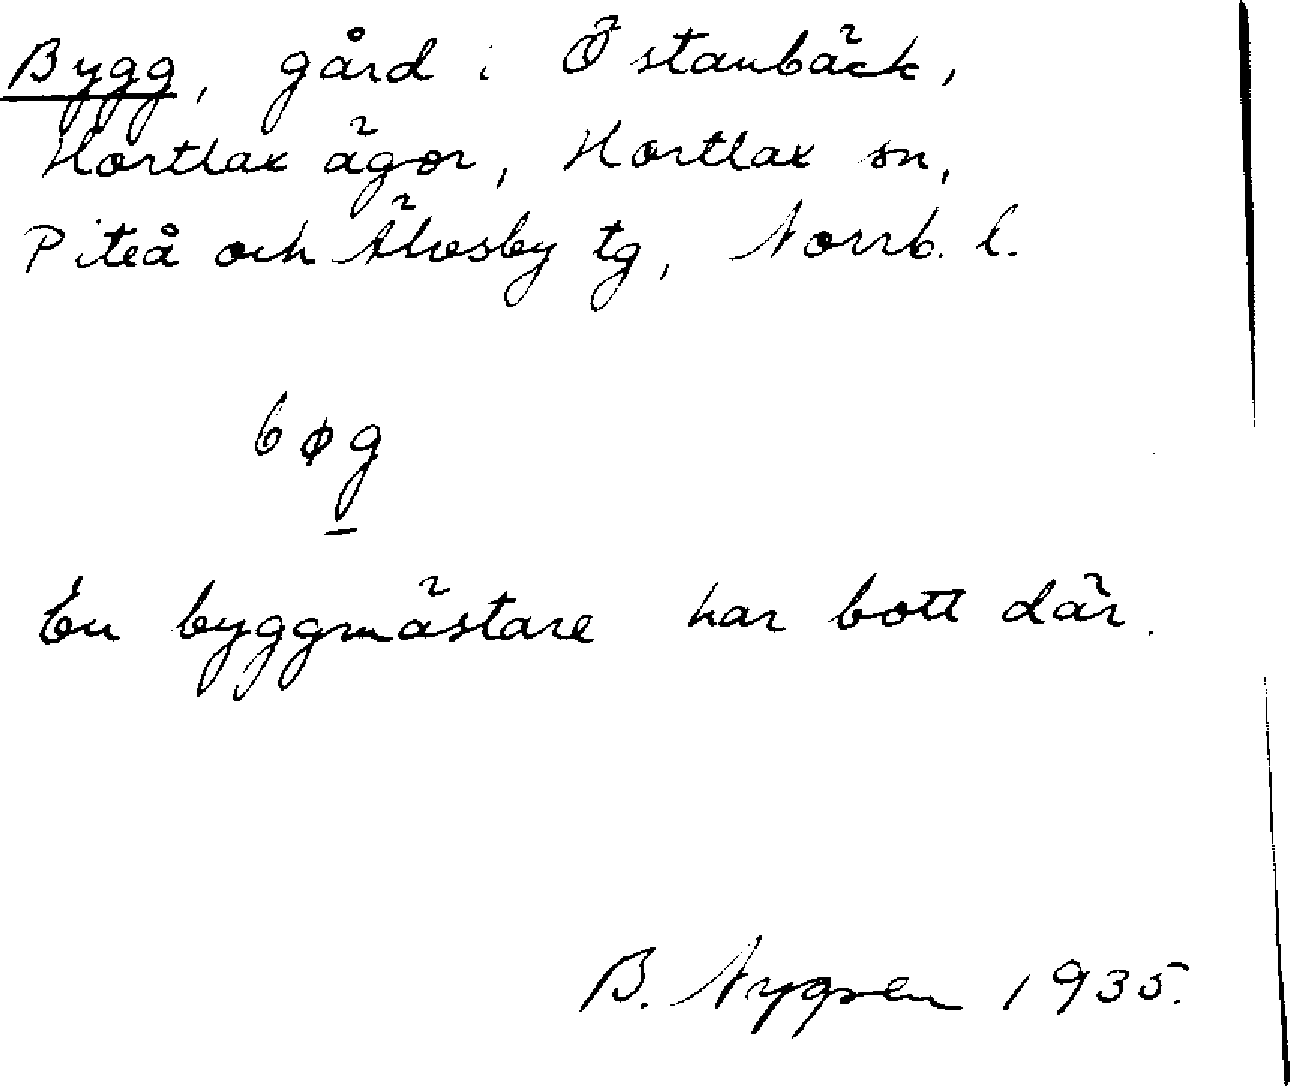 Bygg, gård i Östanbäck,
Hortlax ägor, Hortlax sn,
Piteå och Älvsby tg, Norrb. l.
bøg
En byggmästare har bott där.
B. Nygren 1935.